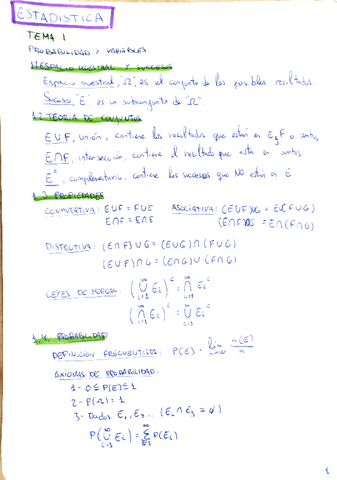 ESTADISTICA
TEMA 1
PROBABILIDAD Y VARIABLES
1.1 ESPACIO MUESTRAL Y SUCESOS
Espacio muestral, "Ω", es el conjunto de los posibles resultados.
Suceso, "E", es un subconjunto de "Ω".
1.2 TEORIA DE CONJUNTOS
E∪F, unión, contiene los resultados que están en E, F o ambos
E∩F, intersección, contiene el resultado que esta en ambos
E^c, complementario, contiene los sucesos que NO estan en E
1.3. PROPIEDADES
CONMUTATIVA: E∪F = F∪E ASOCIATIVA: (E∪F)∪G = E∪(F∪G)
E∩F = F∩E (E∩F)∩G = E∩(F∩G)
DISTRUTIVA: (E∩F)∪G = (E∪G)∩(F∪G)
(E∪F)∩G = (E∩G)∪(F∩G)
LEYES DE MORGAN: (∞∪i=1 Ei)^c = ∞∩i=1 Ei^c
(∞∩i=1 Ei)^c = ∞∪i=1 Ei^c
1.4. PROBABILIDAD
DEFINICION FRECUENTISTA: P(E) = lim n→∞ n(E)/n
AXIOMAS DE PROBABILIDAD:
1- 0≤P(E)≤1
2- P(Ω)=1
3- Dados E1, E2, ... (Ei∩Ej = ∅)
P(∞∪i=1 Ei) = ∞Σi=1 P(Ei)
1